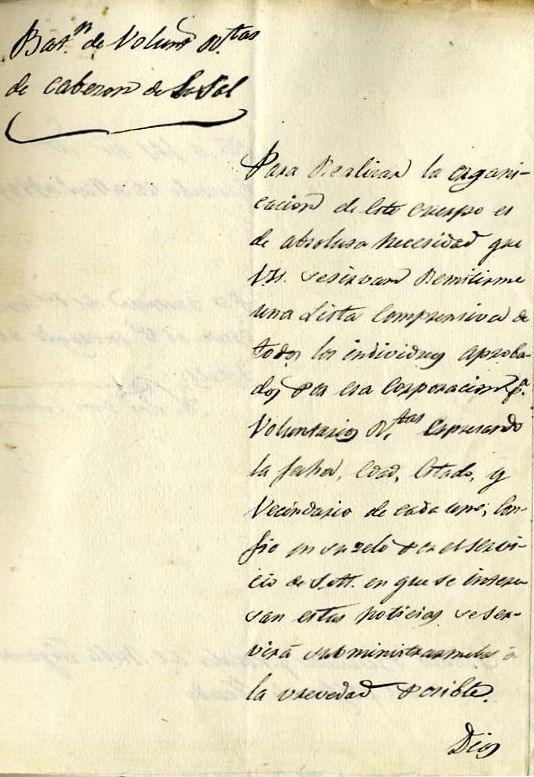 Bat.n de Volunt.s R.tas
de Cabezon de la Sal
Para Realizar la organi-
cacion de este cuerpo es
de absolusa necesidad que
VSS. se sirvan Remitirme
una Lista Comprensiva de
todos los individuos aproba-
dos por esa Corporacion p.a
Voluntarios R.tas Expresando
la fecha, Edad, Estado, y
Vecindario de cada uno; Con-
fio en su zelo por el servi-
cio de S.M. en que se intere-
san estas noticias se ser-
virá subministrarmelas á
la vrevedad posible.
Dios